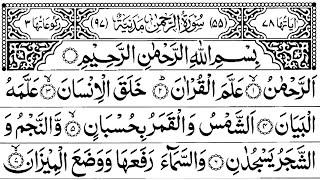 اٰیَاتُهَا ٧٨ (٥٥) سُوْرَةُ الرَّحْمٰنِ مَدَنِيَّةٌ (٩٧) رُكُوْعَاتُهَا ٣
بِسْمِ اللهِ الرَّحْمٰنِ الرَّحِيْمِ
اَلرَّحْمٰنُ ۝١ عَلَّمَ الْقُرْاٰنَ ۝٢ خَلَقَ الْاِنْسَانَ ۝٣ عَلَّمَهُ
الْبَيَانَ ۝٤ اَلشَّمْسُ وَالْقَمَرُ بِحُسْبَانٍ ۝٥ وَّالنَّجْمُ وَ
الشَّجَرُ يَسْجُدٰنِ ۝٦ وَالسَّمَآءَ رَفَعَهَا وَوَضَعَ الْمِيْزَانَ ۝٧